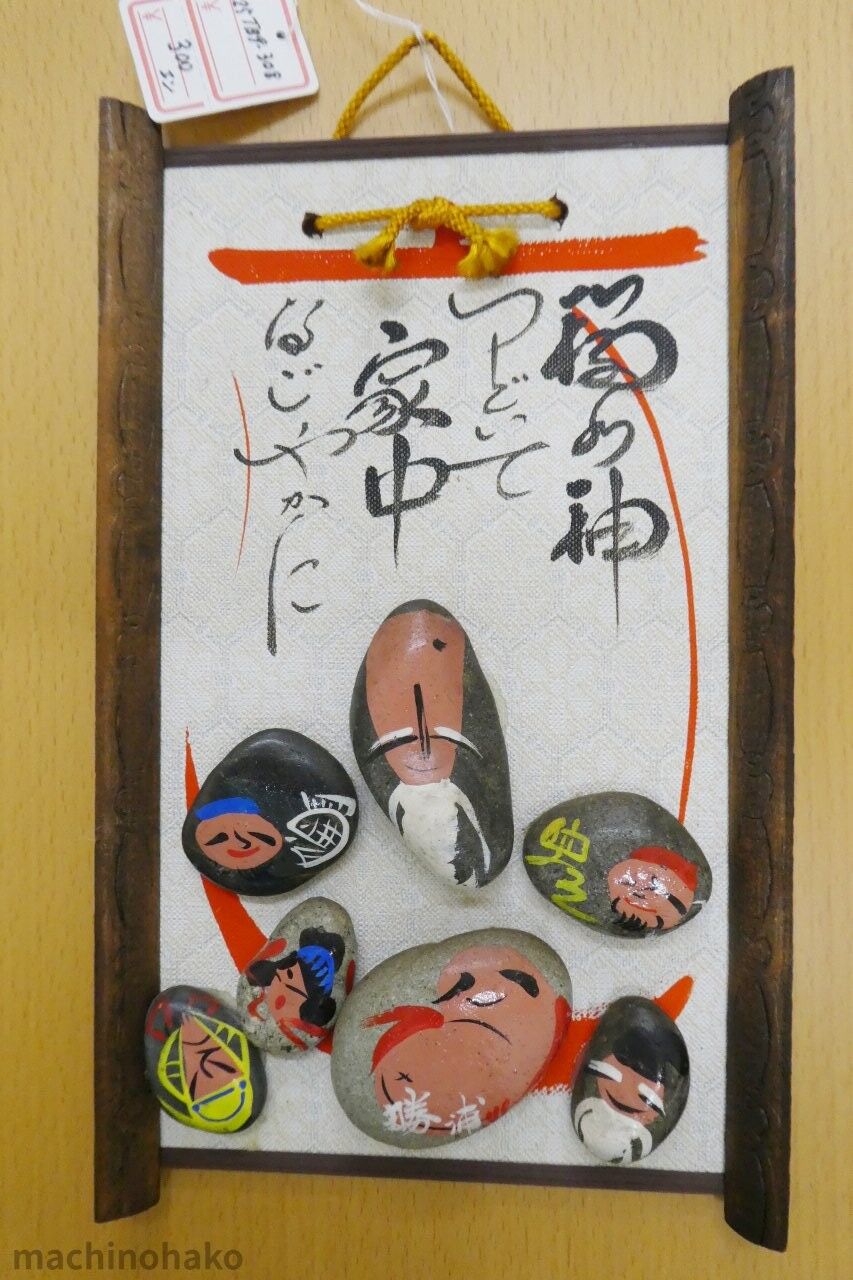 福の神
つどいて
家中
なごやかに
勝浦
¥
¥
300
エン
machinohako